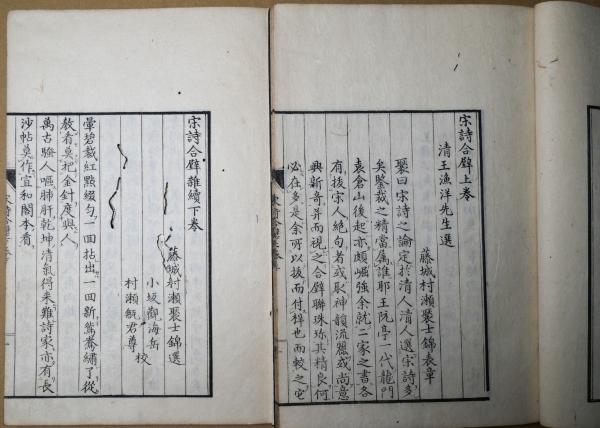 宋詩合璧上卷
清王漁洋先生選
藤城村瀨褧士錦表章
褧曰宋詩之論定於清人清人選宋詩多
矣鑒裁之精當屬誰耶王阮亭一代龍門
袁倉山後起亦頗崛強余就二家之書各
有拔宋人絕句者或取神韻流麗或尚意
興新奇并而視之合璧聯珠珎其精良何
必在多是余所以拔而付梓也而較之它
宋詩合璧雜續下卷
藤城村瀨褧士錦選
小坂觀海岳
村瀨瓻君尊
校
暈碧裁紅點綴勻一回拈出一回新鴛鴦繡了從
教看莫把金針度與人
萬古騷人嘔肺肝乾坤清氣得來難詩家亦有長
沙帖莫作宣和閣本看